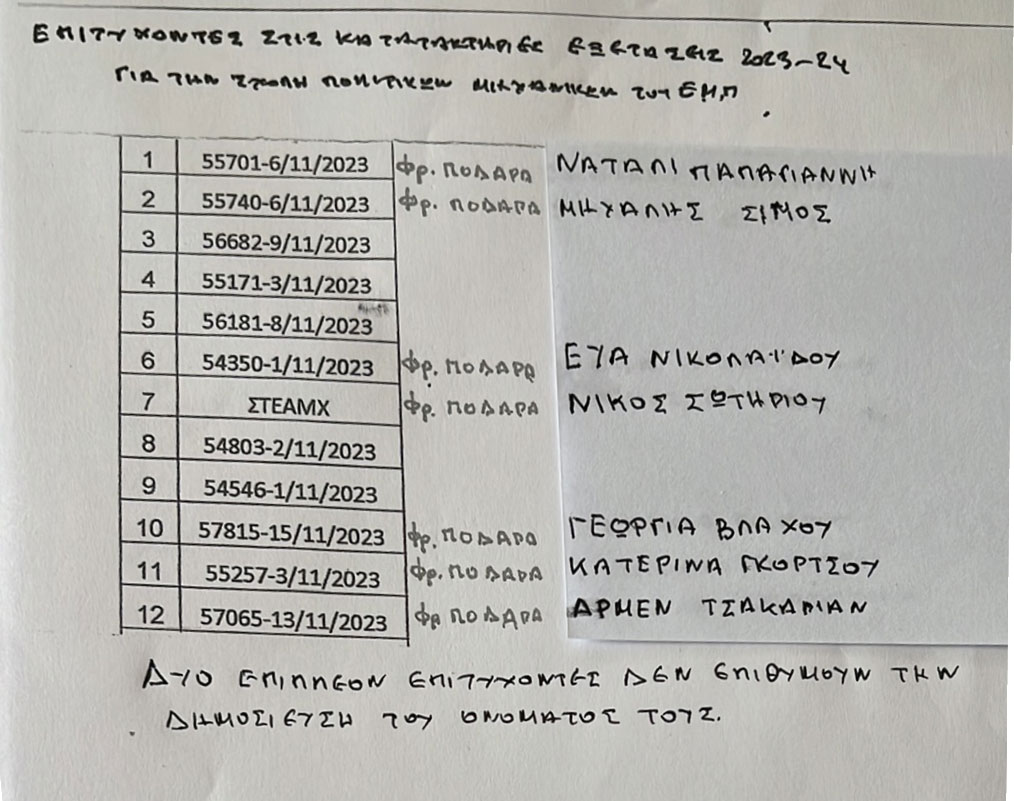 ΕΠΙΤΥΧΟΝΤΕΣ ΣΤΙΣ ΚΑΤΑΤΑΚΤΗΡΙΕΣ ΕΞΕΤΑΣΕΙΣ 2023-24
ΓΙΑ ΤΗΝ ΣΧΟΛΗ ΠΟΛΙΤΙΚΩΝ ΜΗΧΑΝΙΚΩΝ ΤΟΥ ΕΜΠ.
1 55701-6/11/2023 φρ. ΠΟΔΑΡΑ ΝΑΤΑΛΙ ΠΑΠΑΓΙΑΝΝΗ
2 55740-6/11/2023 φρ. ΠΟΔΑΡΑ ΜΙΧΑΛΗΣ ΣΙΜΟΣ
3 56682-9/11/2023
4 55171-3/11/2023
5 56181-8/11/2023
6 54350-1/11/2023 φρ. ΠΟΔΑΡΑ ΕΥΑ ΝΙΚΟΛΑΪΔΟΥ
7 ΣΤΕΑΜΧ φρ. ΠΟΔΑΡΑ ΝΙΚΟΣ ΣΩΤΗΡΙΟΥ
8 54803-2/11/2023
9 54546-1/11/2023
10 57815-15/11/2023 φρ. ΠΟΔΑΡΑ ΓΕΩΡΓΙΑ ΒΛΑΧΟΥ
11 55257-3/11/2023 φρ. ΠΟΔΑΡΑ ΚΑΤΕΡΙΝΑ ΓΚΟΡΤΣΟΥ
12 57065-13/11/2023 φρ ΠΟΔΑΡΑ ΑΡΜΕΝ ΤΣΑΚΑΡΙΑΝ
ΔΥΟ ΕΠΙΠΛΕΟΝ ΕΠΙΤΥΧΟΝΤΕΣ ΔΕΝ ΕΠΙΘΥΜΟΥΝ ΤΗΝ
ΔΗΜΟΣΙΕΥΣΗ ΤΟΥ ΟΝΟΜΑΤΟΣ ΤΟΥΣ.